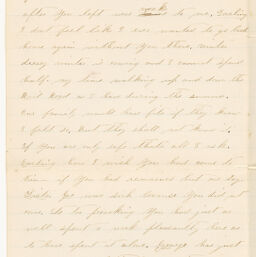 after you left was to me, Darling
I dont feel like I ever wanted to go back
home again without you there. Winter
dreary winter is coming and I cannot spend
half my time walking up and down the
as I have during the summer.
Our family would have fits if they knew
I felt so. But they shall not know it.
If you are only safe thats all I ask.
Darling how I wish you had come to
him if you had remained but a day.
was sick because you did not
come. So to you have just as
well spent a week pleasantly here as
to have spent it alone. George has just